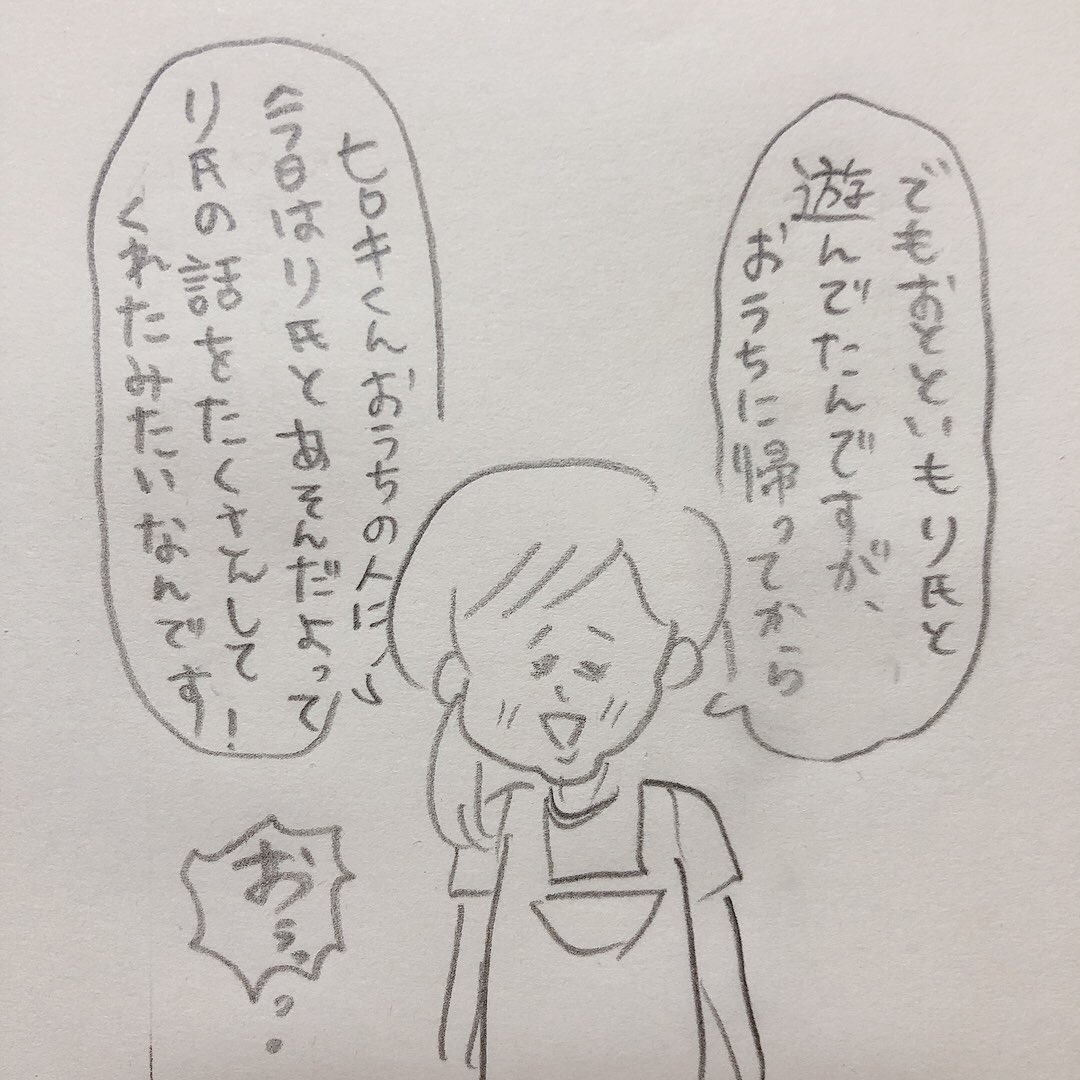 でもおとといもり氏と
遊んでたんですが、
おうちに帰ってから
ヒロキくんおうちの人にっ
今日はり氏とあそんだよって
り氏の話をたくさんして！
くれたみたいなんです
おぅっ・